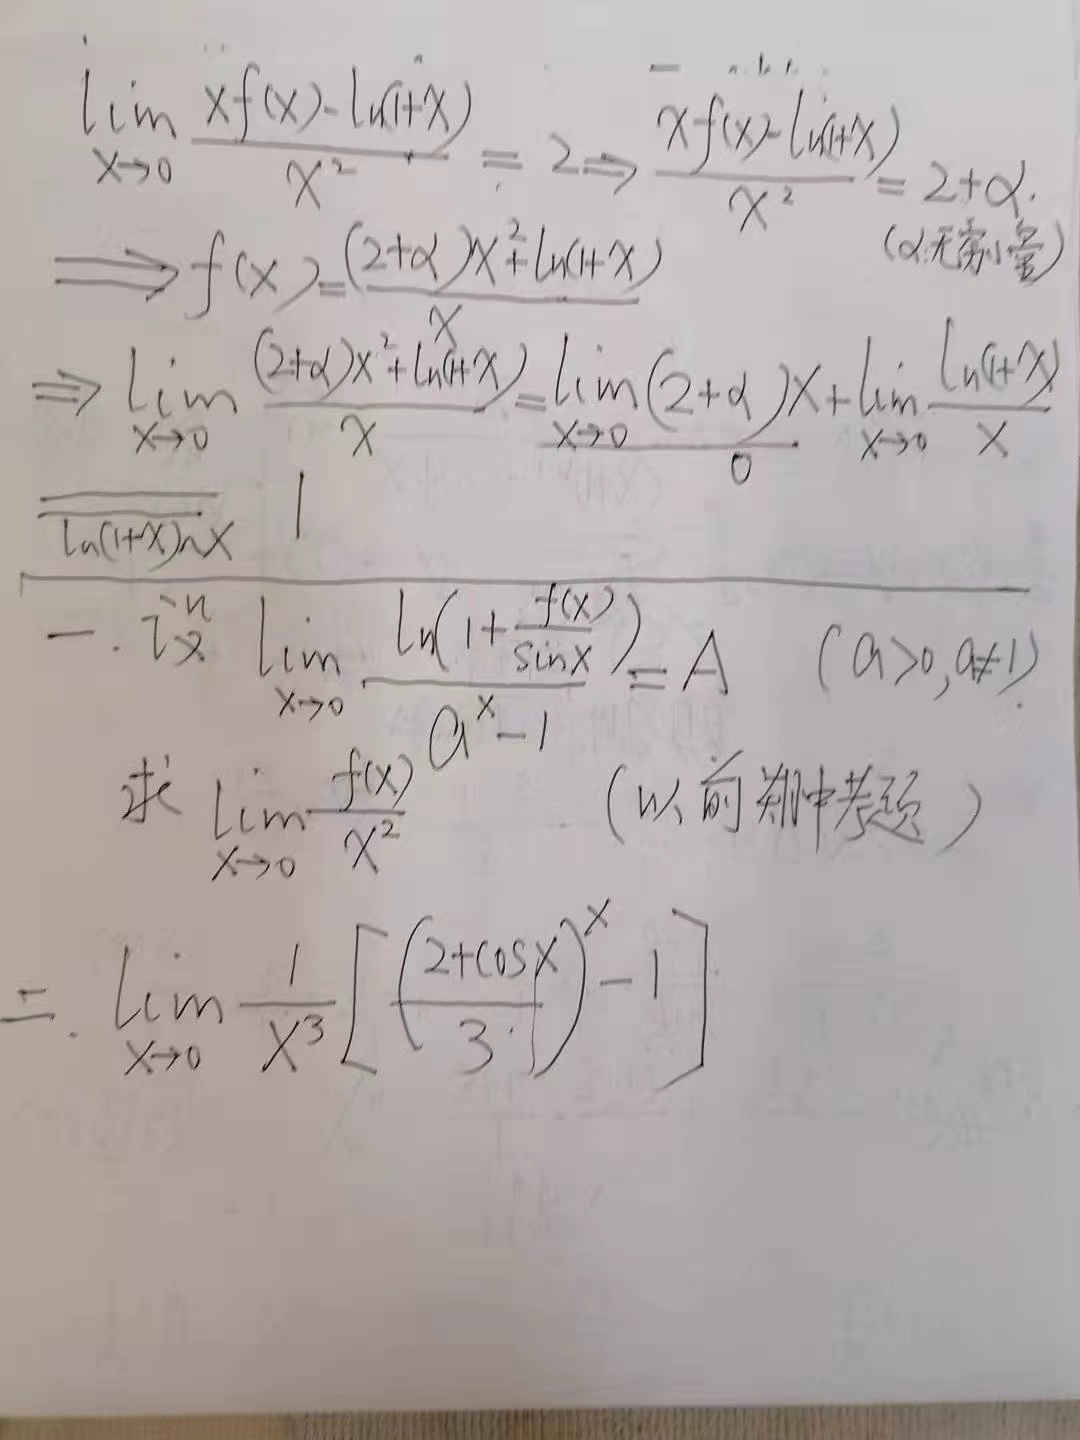 lim x→0 (xf(x)-ln(1+x))/x² = 2 ⇒ (xf(x)-ln(1+x))/x² = 2+α.
(α:无穷小量)
⇒ f(x)=((2+α)x²+ln(1+x))/x
⇒ lim x→0 ((2+α)x²+ln(1+x))/x = lim x→0 (2+α)x + lim x→0 ln(1+x)/x
0
ln(1+x)~x 1
一. 设 lim x→0 ln(1+f(x)/sinx)/(aˣ-1) = A (a>0,a≠1)
求 lim x→0 f(x)/x² (以前期中考题)
二. lim x→0 1/x³ [((2+cosx)/3)ˣ-1]